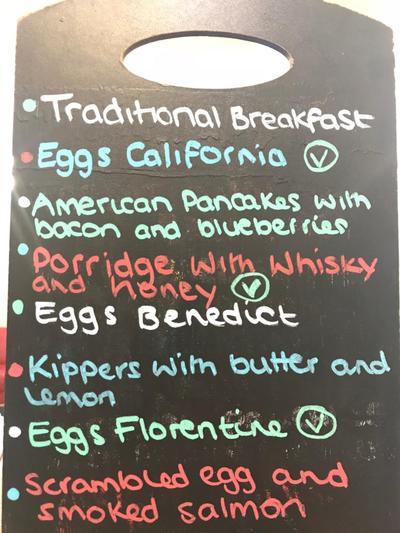 • Traditional Breakfast
• Eggs California Ⓥ
• American Pancakes with
bacon and blueberries
• Porridge with Whisky
and honey Ⓥ
• Eggs Benedict
• Kippers with butter and
lemon
• Eggs Florentine Ⓥ
• Scrambled egg and
smoked salmon